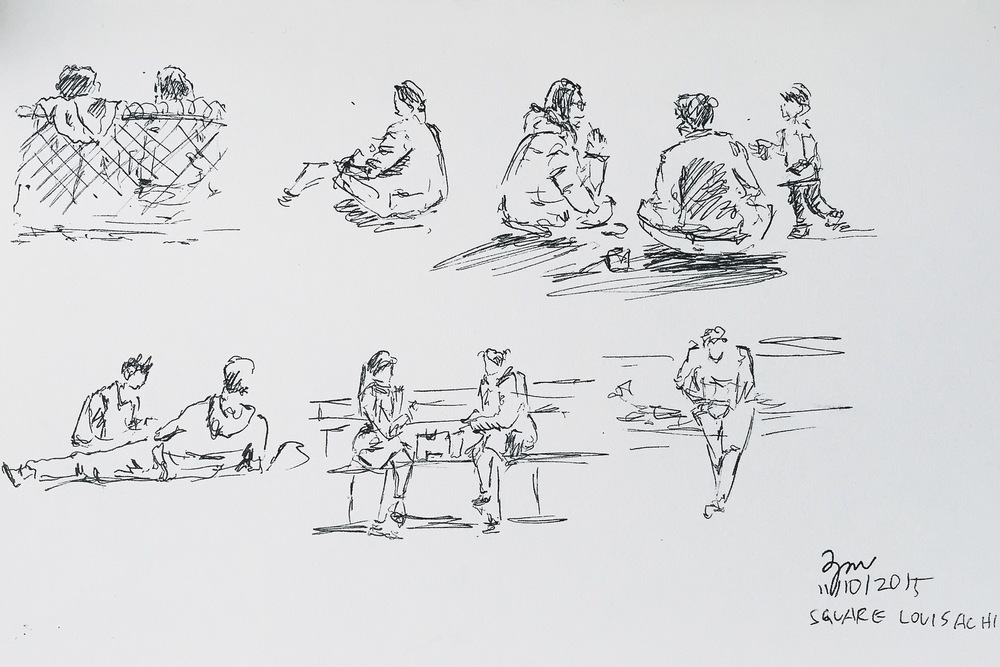 11/10/2015
SQUARE LOUISACHI